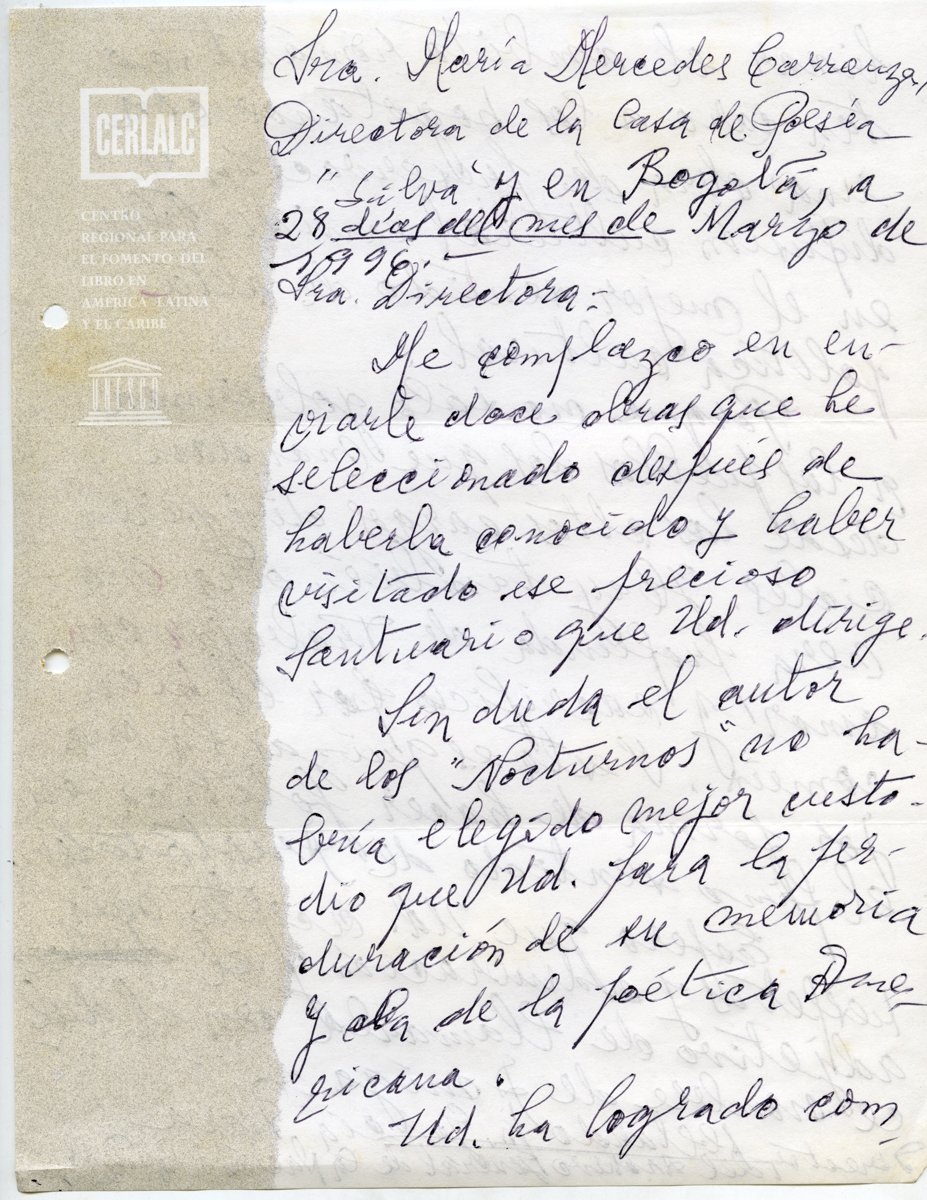 CERLALC
CENTRO
REGIONAL PARA
EL FOMENTO DEL
LIBRO EN
AMERICA LATINA
Y EL CARIBE
UNESCO
Sra. María Mercedes Carranza,
Directora de la Casa de Poesía
"Silva" y en Bogotá, a
28 días del mes de Marzo de
1996.-
Sra. Directora:-
Me complazco en en-
viarle doce obras que he
seleccionado después de
haberla conocido y haber
visitado ese precioso
Santuario que Ud. dirige.
Sin duda el autor
de los "Nocturnos" no ha-
bría elegido mejor custo-
dio que Ud. para la per-
duración de su memoria
y la de la poética Ame-
ricana.
Ud. ha logrado com-